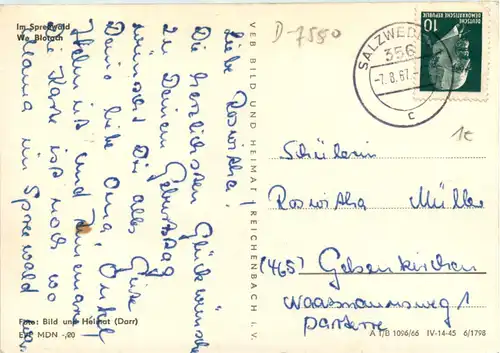 Im Spreewald
We Blotsch
D-7550
SALZWEDEL
356
-7.8.67.-
c
DEUTSCHE
DEMOKRATISCHE REPUBLIK
10
1€
Liebe Roswitha!
Die herzlichsten Glückwünsche
zu Deinem Geburtstag
wünscht Dir alles Gute
Deine liebe Oma, Onkel
Helm ut und
Die Karte ist noch wo
Mama im Spreewald war.
VEB BILD UND HEIMAT REICHENBACH I. V.
Schülerin
Roswitha Müller
(465) Gelsenkirchen
Waassmannsweg 1
parterre
Foto: Bild und Heimat (Darr)
EVP MDN -,20
A 1/B 1096/66 IV-14-45 6/1798